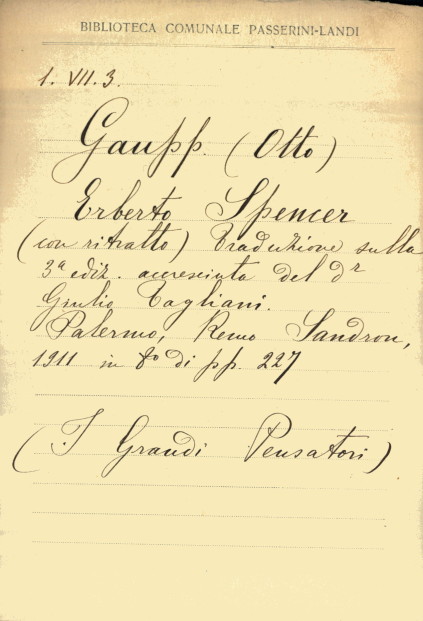 BIBLIOTECA COMUNALE PASSERINI-LANDI
1. VII. 3.
Gaupp. (Otto)
Erberto Spencer
(con ritratto) Traduzione sulla
3ª ediz. accresciuta del dr
Giulio Tagliani.
Palermo, Remo Sandron,
1911 in 8º di pp. 227
(I Grandi Pensatori)